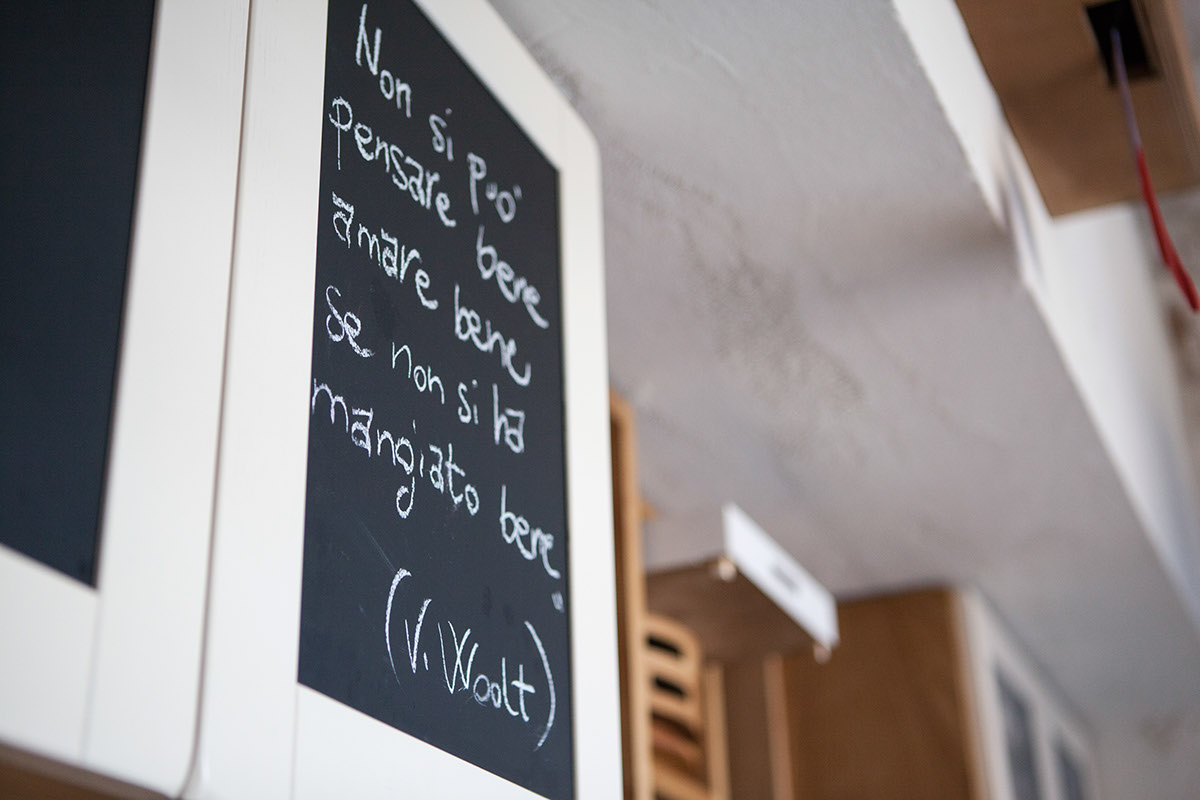 Non si può
pensare bene
amare bene
se non si ha
mangiato bene
"
(V. Woolt)